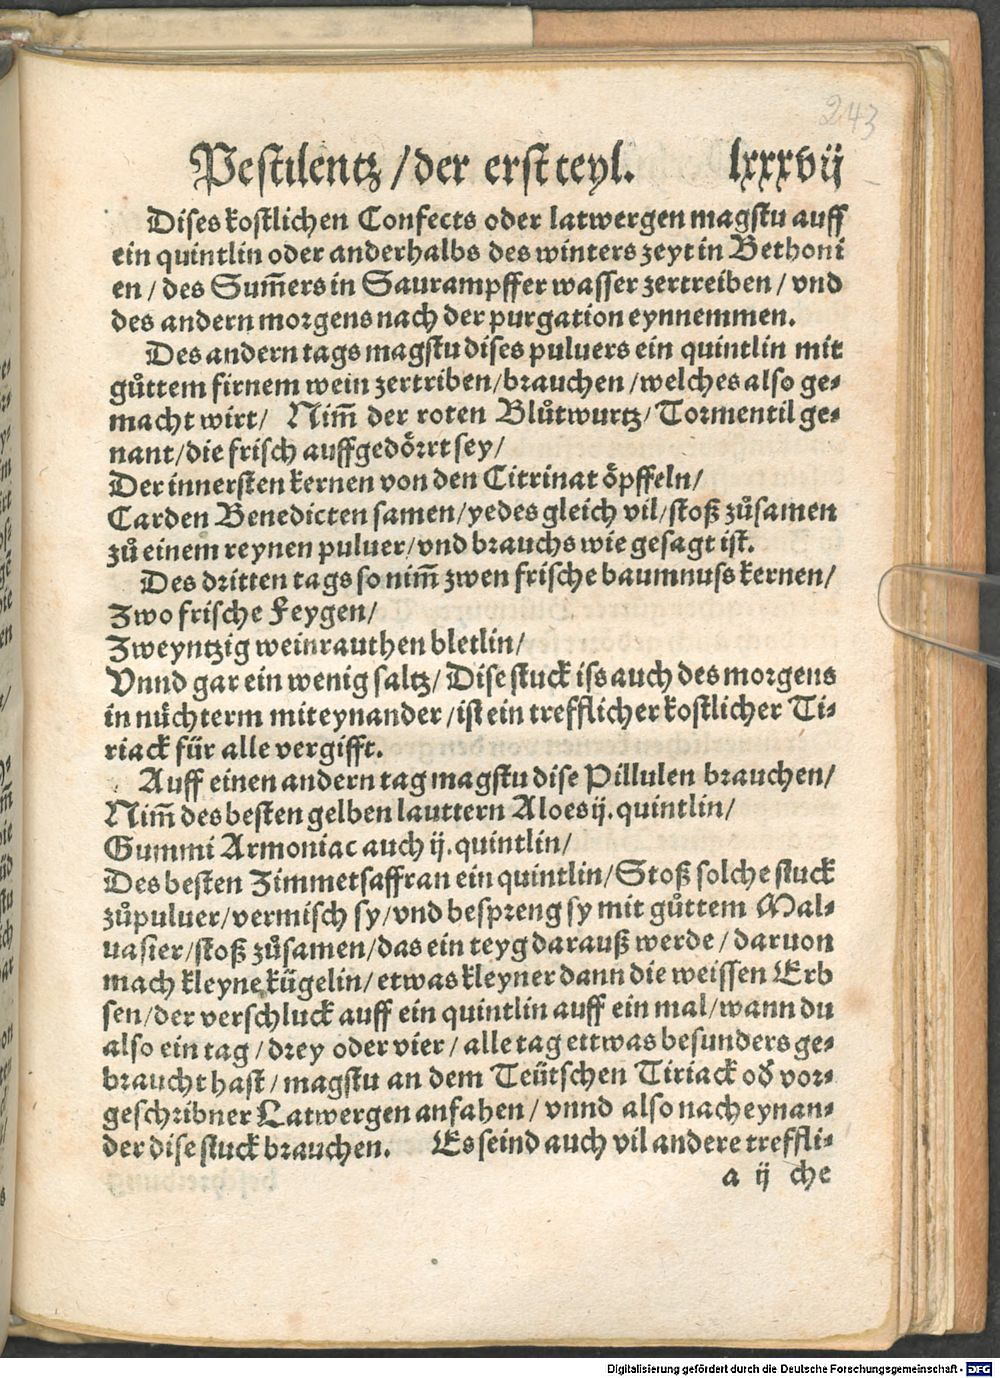 243
Pestilentz / der erst teyl. lxxxvij
Dises kostlichen Confects oder latwergen magstu auff
ein quintlin oder anderhalbs des winters zeyt in Bethoni
en / des Sum̃ers in Saurampffer wasser zertreiben / vnd
des andern morgens nach der purgation eynnemmen.
Des andern tags magstu dises puluers ein quintlin mit
gůttem firnem wein zertriben / brauchen / welches also ge⸗
macht wirt / Nim̃ der roten Blůtwurtz / Tormentil ge⸗
nant / die frisch auffgedörrt sey /
Der innersten kernen von den Citrinat öpffeln /
Carden Benedicten samen / yedes gleich vil / stoß zůsamen
zů einem reynen puluer / vnd brauchs wie gesagt ist.
Des dritten tags so nim̃ zwen frische baumnuss kernen /
Zwo frische Feygen /
Zweyntzig weinrauthen bletlin /
Vnnd gar ein wenig saltz / Dise stuck iss auch des morgens
in nüchterm miteynander / ist ein trefflicher kostlicher Ti⸗
riack für alle vergifft.
Auff einen andern tag magstu dise Pillulen brauchen /
Nim̃ des besten gelben lauttern Aloes ij. quintlin /
Gummi Armoniac auch ij. quintlin /
Des besten Zimmetsaffran ein quintlin / Stoß solche stuck
zůpuluer / vermisch sy / vnd bespreng sy mit gůttem Mal⸗
uasier / stoß zůsamen / das ein teyg darauß werde / daruon
mach kleyne kügelin / etwas kleyner dann die weissen Erb
sen / der verschluck auff ein quintlin auff ein mal / wann du
also ein tag / drey oder vier / alle tag ettwas besunders ge⸗
braucht hast / magstu an dem Teütschen Tiriack oď vor⸗
geschribner Latwergen anfahen / vnnd also nach eynan⸗
der dise stuck brauchen. Es seind auch vil andere treffli⸗
a ij che
Digitalisierung gefördert durch die Deutsche Forschungsgemeinschaft - DFG